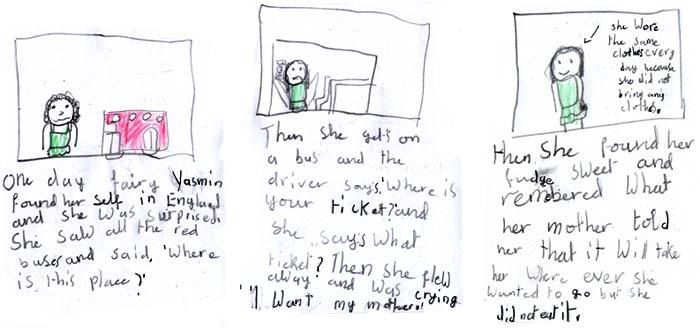 One day fairy Yasmin
found her self in England
and she was surprised.
She saw all the red
buses and said, 'Where
is this place?'
Then she gets on
a bus and the
driver says, 'Where is
your ticket?' and
she says what
ticket? Then she flew
away and was crying
'I want my mother!'
she wore
the same
clothes every
day because
she did not
bring any
clothes.
then She found her
fudge sweet and
rembered what
her mother told
her that it will take
her where ever she
wanted to go but she
did not eat it.